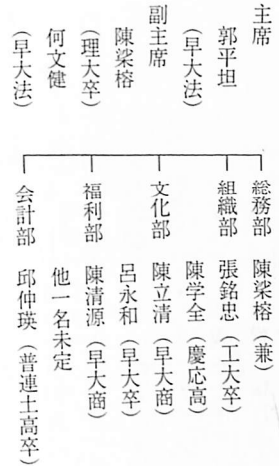 主席
郭平坦
(早大法)
副主席
陳榘榕
(理大卒)
何文健
(早大法)
総務部 陳榘榕(兼)
組織部 張銘忠(工大卒)
陳学全(慶応高)
文化部 陳立清(早大商)
呂永和(早大卒)
福利部 陳清源(早大商)
他一名未定
会計部 邱仲瑛(普連土高卒)